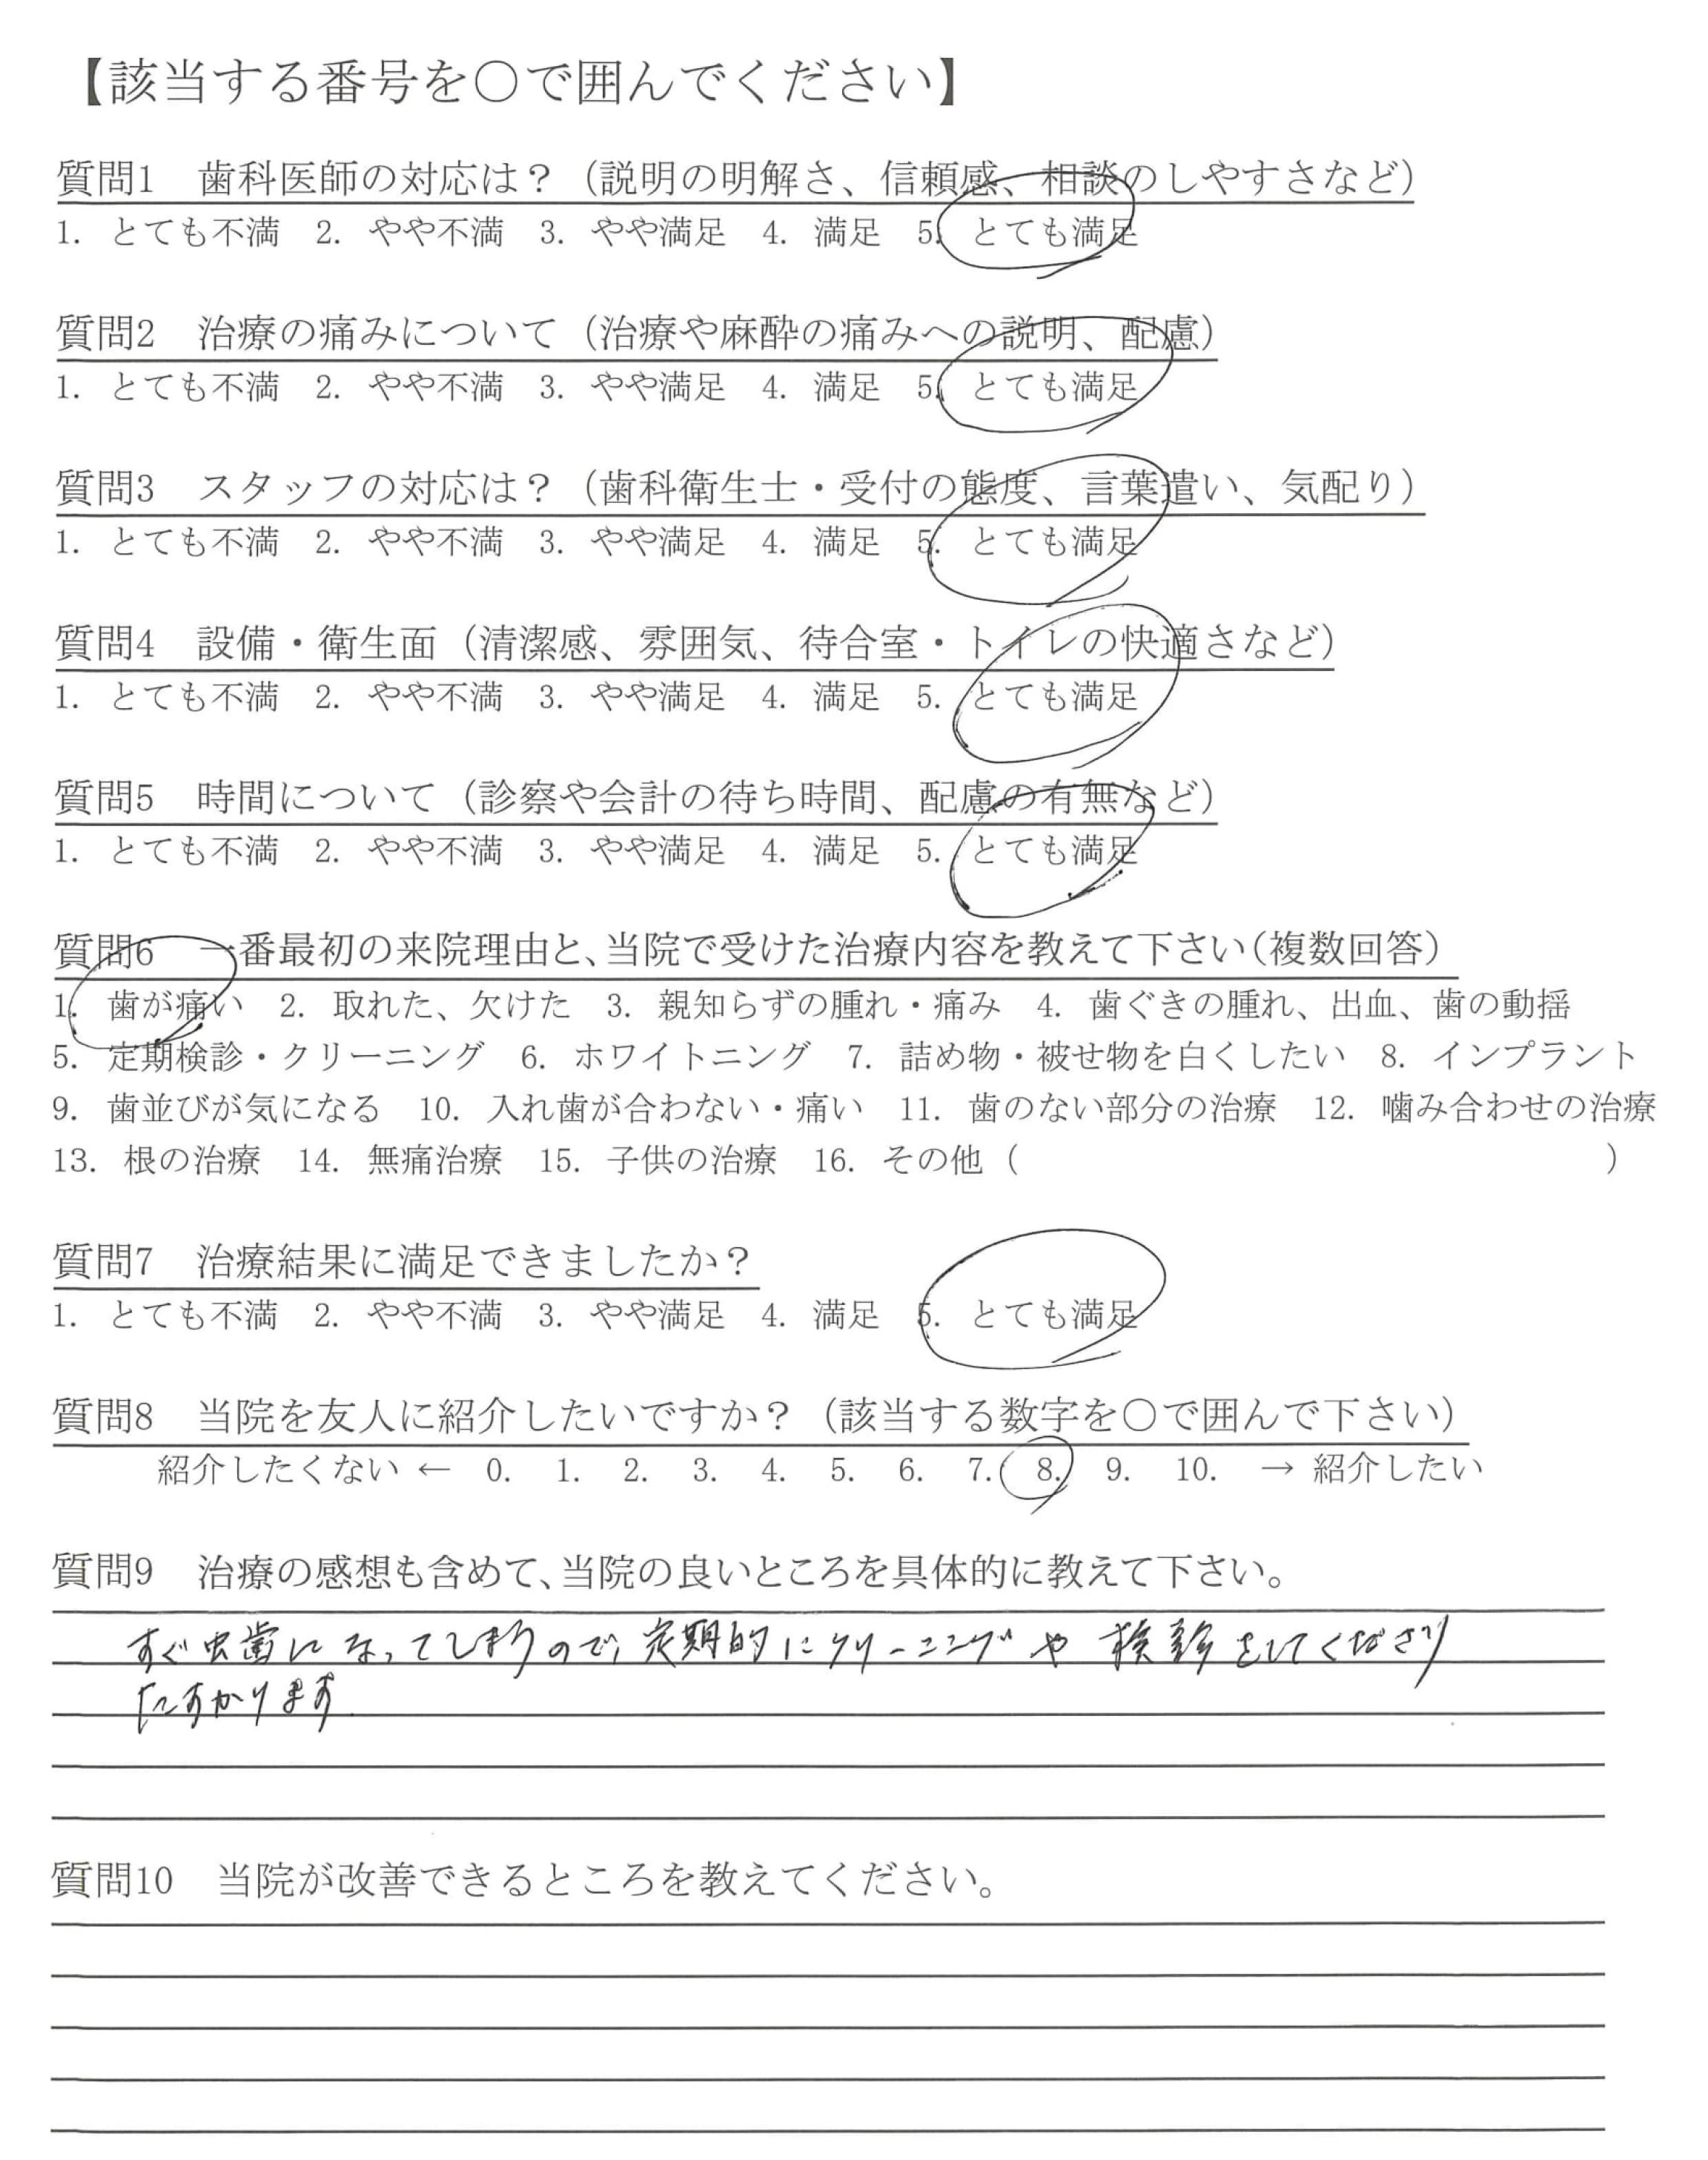 【該当する番号を〇で囲んでください】
質問1　歯科医師の対応は？（説明の明解さ、信頼感、相談のしやすさなど）
1. とても不満　2. やや不満　3. やや満足　4. 満足　5. とても満足
質問2　治療の痛みについて（治療や麻酔の痛みへの説明、配慮）
1. とても不満　2. やや不満　3. やや満足　4. 満足　5. とても満足
質問3　スタッフの対応は？（歯科衛生士・受付の態度、言葉遣い、気配り）
1. とても不満　2. やや不満　3. やや満足　4. 満足　5. とても満足
質問4　設備・衛生面（清潔感、雰囲気、待合室・トイレの快適さなど）
1. とても不満　2. やや不満　3. やや満足　4. 満足　5. とても満足
質問5　時間について（診察や会計の待ち時間、配慮の有無など）
1. とても不満　2. やや不満　3. やや満足　4. 満足　5. とても満足
質問6　一番最初の来院理由と、当院で受けた治療内容を教えて下さい（複数回答）
1. 歯が痛い　2. 取れた、欠けた　3. 親知らずの腫れ・痛み　4. 歯ぐきの腫れ、出血、歯の動揺
5. 定期検診・クリーニング　6. ホワイトニング　7. 詰め物・被せ物を白くしたい　8. インプラント
9. 歯並びが気になる　10. 入れ歯が合わない・痛い　11. 歯のない部分の治療　12. 噛み合わせの治療
13. 根の治療　14. 無痛治療　15. 子供の治療　16. その他（　　　　　　　　　　）
質問7　治療結果に満足できましたか？
1. とても不満　2. やや不満　3. やや満足　4. 満足　5. とても満足
質問8　当院を友人に紹介したいですか？（該当する数字を〇で囲んで下さい）
紹介したくない ←　0.　1.　2.　3.　4.　5.　6.　7.　8.　9.　10.　→ 紹介したい
質問9　治療の感想も含めて、当院の良いところを具体的に教えて下さい。
すぐ虫歯になってしまうので、定期的にクリーニングや検診をしてくださり
たすかります
質問10　当院が改善できるところを教えてください。